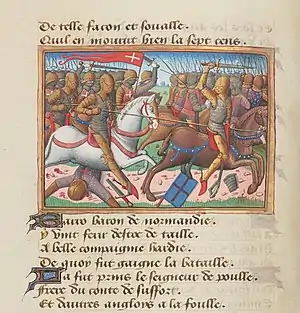 De telle facon et foualle.
Quil en mourut bien la sept cens.
Sauro baron de normandie.
y vint seur desroe de taille.
A belle compaignie hardie.
De quoy fut gaigne la bataille.
La fut prins le seigneur de poulle.
frere du conte de suffort.
Et dautres angloys a la foulle.